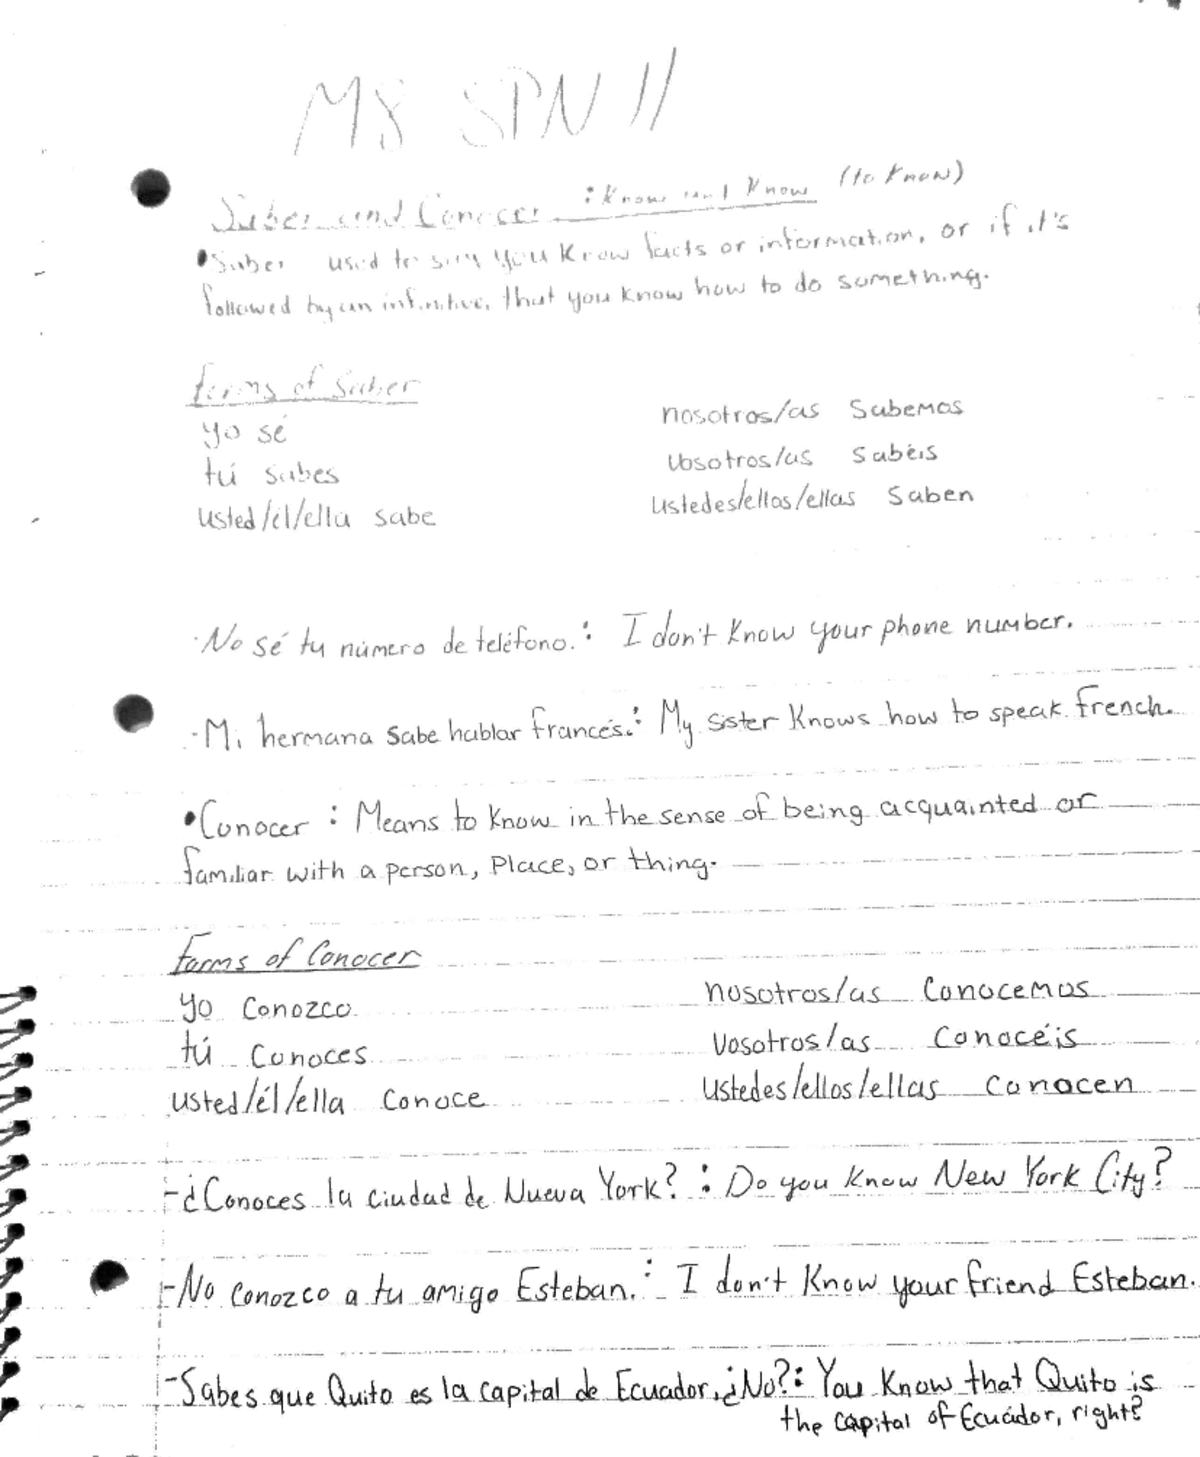 M8 SPN II
Saber and Conocer : Know and Know (to know)
•Saber used to say you know facts or information, or if it's
followed by an infinitive, that you know how to do something.
Forms of Saber
yo sé nosotros/as Sabemos
tú sabes vosotros/as sabéis
usted/él/ella sabe ustedes/ellos/ellas saben
·No sé tu número de teléfono.: I don't know your phone number.
-Mi hermana sabe hablar francés.: My sister knows how to speak french.
•Conocer : Means to know in the sense of being acquainted or
familiar with a person, place, or thing.
Forms of Conocer
yo Conozco nosotros/as Conocemos
tú Conoces vosotros/as Conocéis
usted/él/ella Conoce ustedes/ellos/ellas conocen
-¿Conoces la ciudad de Nueva York? : Do you know New York City?
-No conozco a tu amigo Esteban. : I don't know your friend Esteban.
-Sabes que Quito es la capital de Ecuador, ¿No?: You know that Quito is
the capital of Ecuador, right?